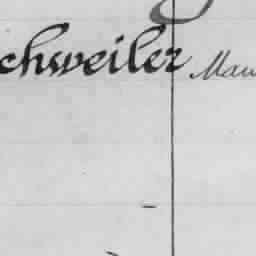 chweiler Mau